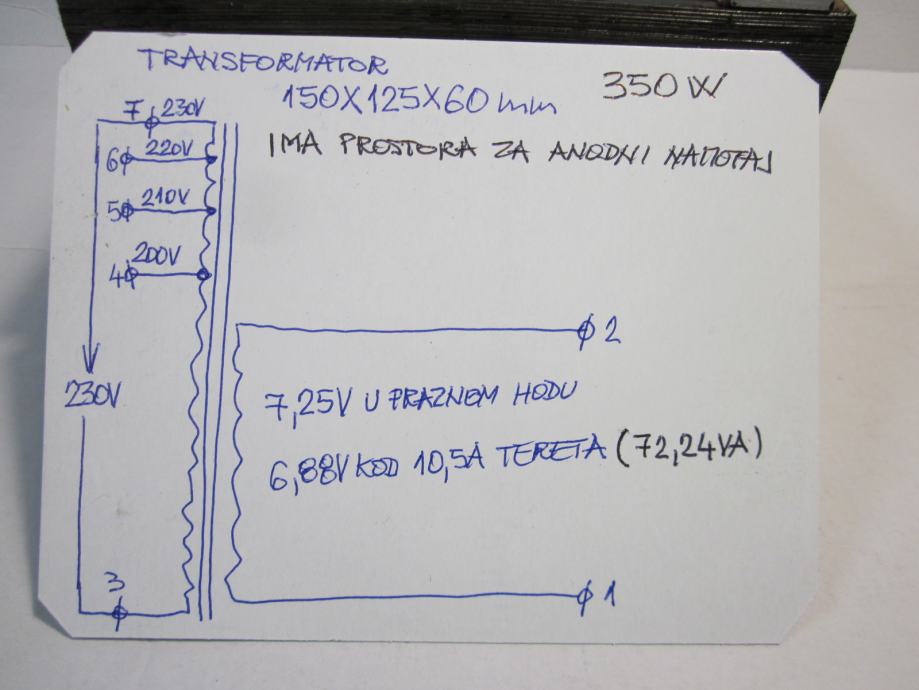 TRANSFORMATOR
150X125X60mm
350W
IMA PROSTORA ZA ANODNI NAMOTAJ
7 230V
6 220V
5 210V
4 200V
2
230V
7,25V U PRAZNEM HODU
6,88V KOD 10,5A TERETA (72,24VA)
3
1